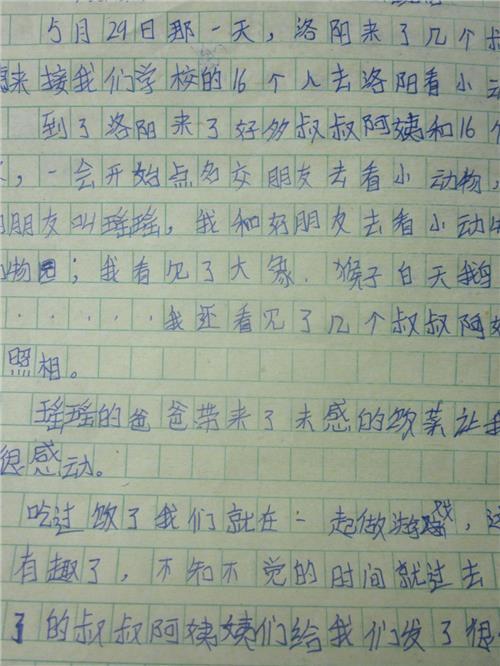 5月29日那一天，洛阳来了几个叔
来接我们学校的16个人去洛阳看小动
到了洛阳来了好多叔叔阿姨和16个
，一会开始点名交朋友去看小动物，
朋友叫瑶瑶，我和好朋友去看小动物
物园；我看见了大象.猴子白天鹅
......我还看见了几个叔叔阿姨
照相。
瑶瑶的爸爸带来了未感的饭菜让我
很感动。
吃过饭了我们就在一起做游戏，这
有趣了，不知不觉的时间就过去
了的叔叔阿姨姨们给我们发了很